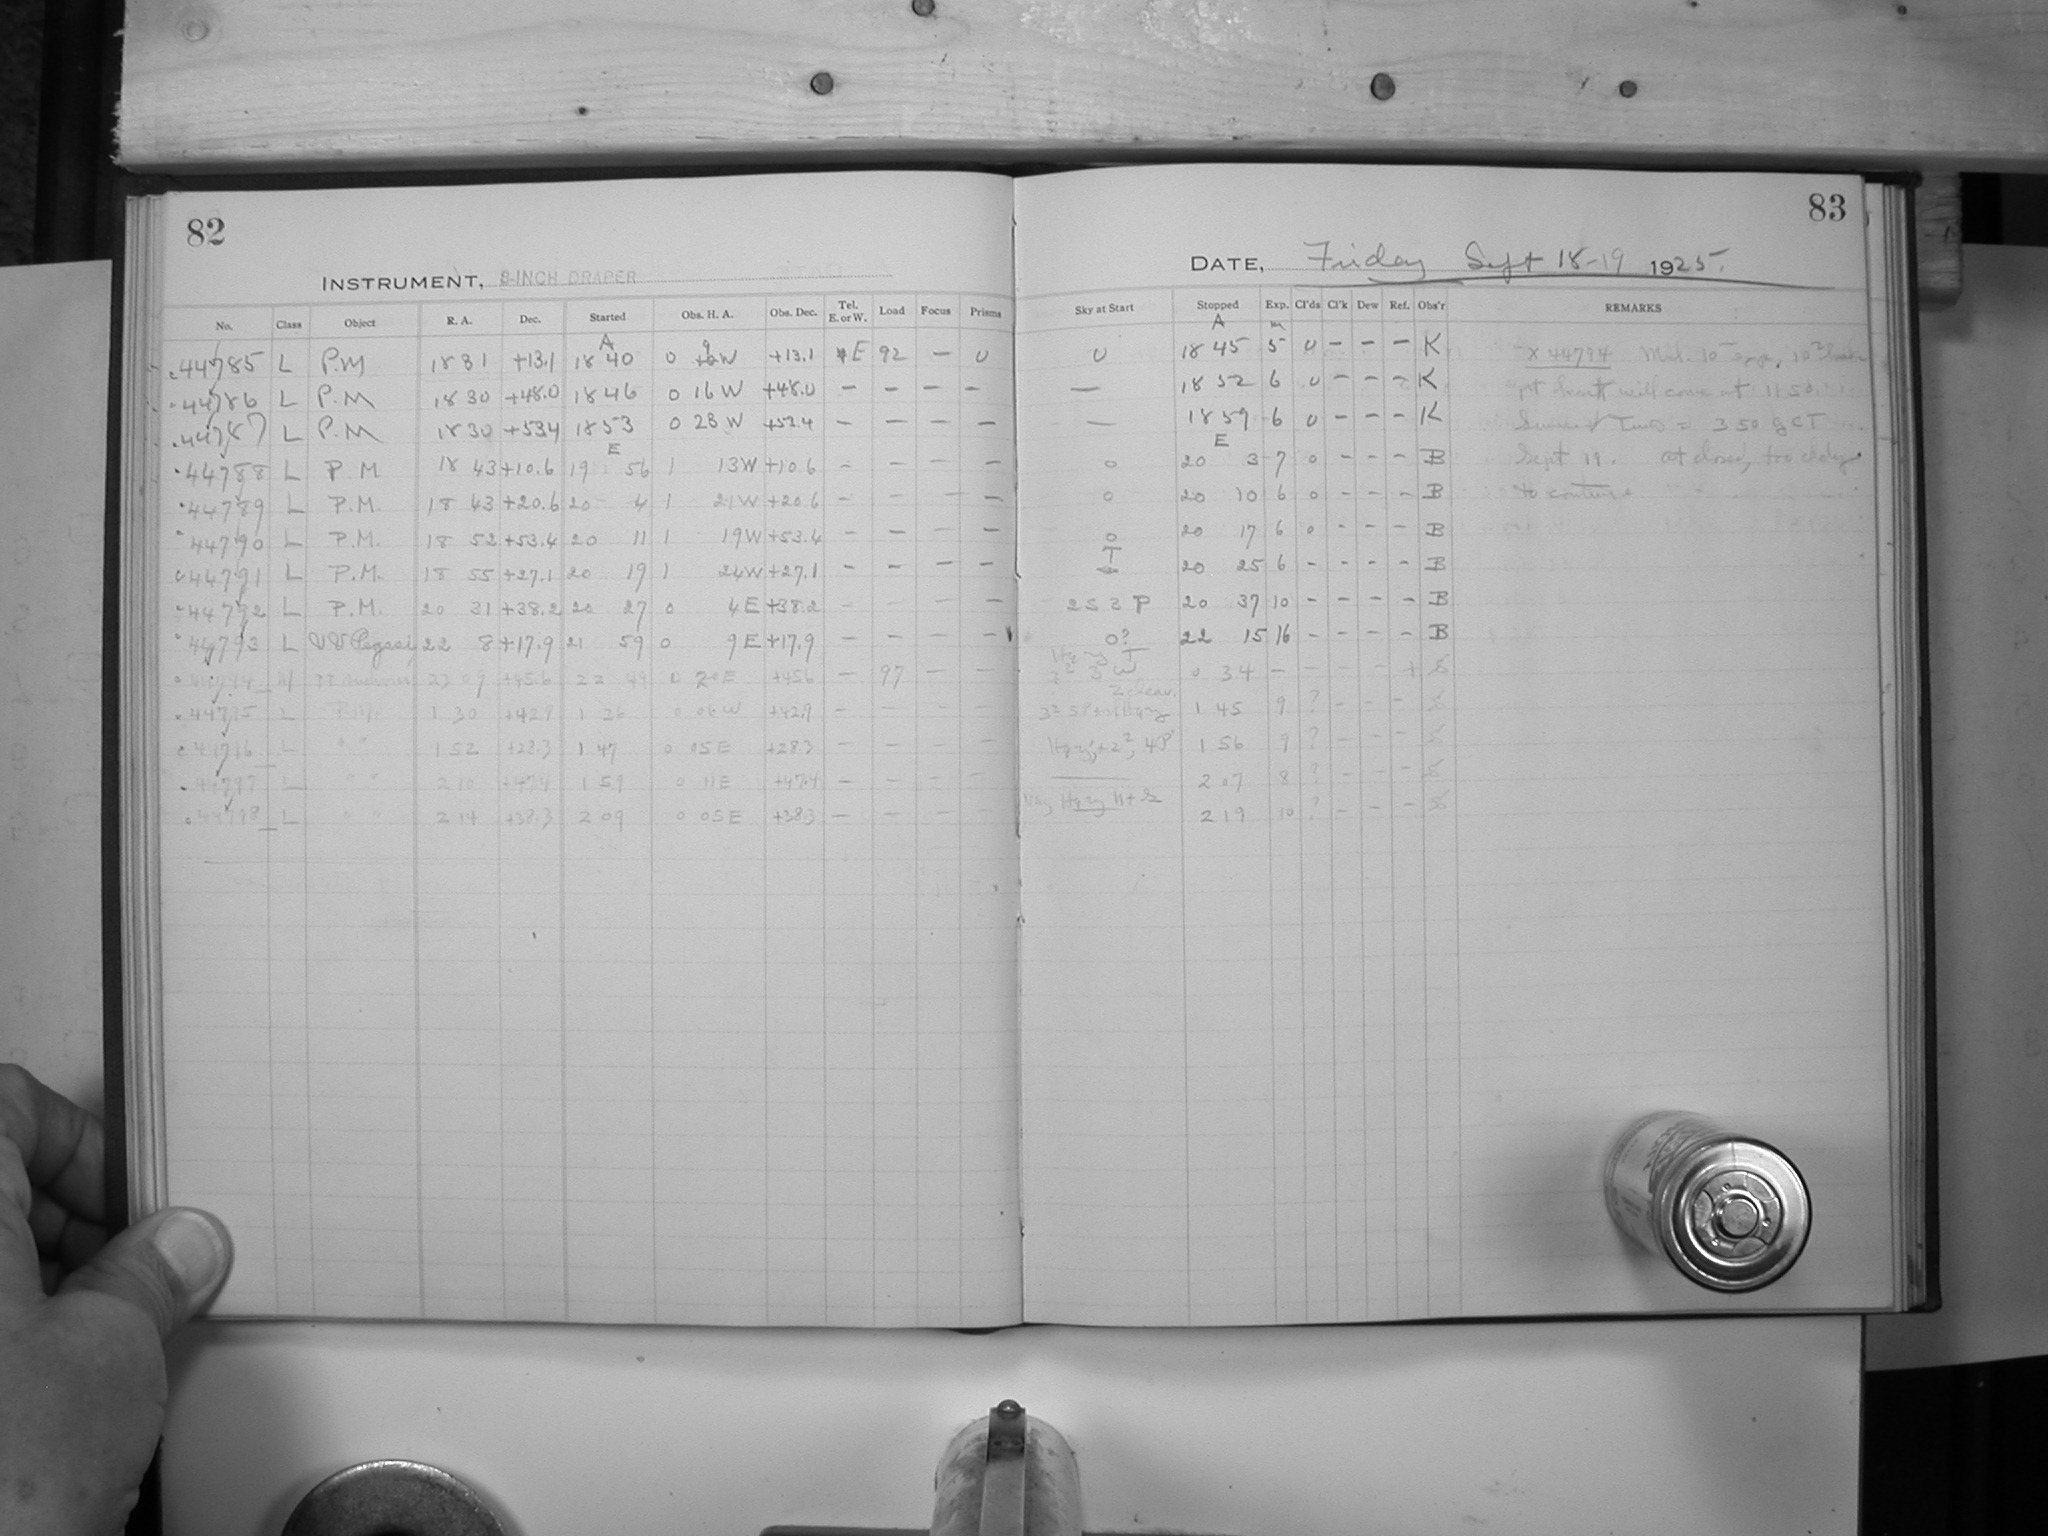 82
INSTRUMENT, 8-INCH DRAPER
No. Class Object R. A. Dec. Started Obs. H. A. Obs. Dec. Tel. E. or W. Load Focus Prisms
A
44785 L P.M 18 31 +13.1 18 40 0 9 W +13.1 E 92 — 0
44786 L P.M 18 30 +48.0 18 46 0 16 W +48.0 — — — —
44787 L P.M 18 30 +53.4 18 53 0 23 W +53.4 — — — —
E
44788 L P.M 18 43 +10.6 19 56 1 13 W +10.6 — — — —
44789 L P.M. 18 43 +20.6 20 4 1 21 W +20.6 — — — —
44790 L P.M. 18 52 +53.4 20 11 1 19 W +53.4 — — — —
44791 L P.M. 18 55 +27.1 20 19 1 24 W +27.1 — — — —
44792 L P.M. 20 31 +38.2 20 27 0 4 E +38.2 — — — —
44793 L VV Pegasi 22 8 +17.9 21 59 0 9 E +17.9 — — — —
23 09 +45.6 22 49 0 20 E +45.6 — 97 — —
44795 L P.M. 1 30 +42.9 1 36 0 06 W +42.9 — — — —
44796 L " " 1 52 +28.3 1 47 0 05 E +28.3 — — — —
44797 L " " 2 10 +47.4 1 59 0 11 E +47.4 — — — —
44798 L " " 2 14 +38.3 2 09 0 05 E +38.3 — — — —
83
DATE, Friday Sept 18-19 1925.
Sky at Start Stopped Exp. Cl'ds Cl'k Dew Ref. Obs'r REMARKS
A m
0 18 45 5 0 — — — K x 44794
— 18 52 6 0 — — — K will come at 11 50
— 18 59 6 0 — — — K Time = 3 50 GCT
E
0 20 3 7 0 — — — B Sept 19. at close, too cldy
0 20 10 6 0 — — — B to continue
0 20 17 6 0 — — — B
T 20 25 6 — — — — B
2 S 3 P 20 37 10 — — — — B
0? 22 15 16 — — — — B
Hazy T
3 W 0 34 — — — — +
2 clear
1 45 9 ? — — —
1 56 9 ? — — —
— 2 07 8 ? — — —
2 19 10 ? — — —